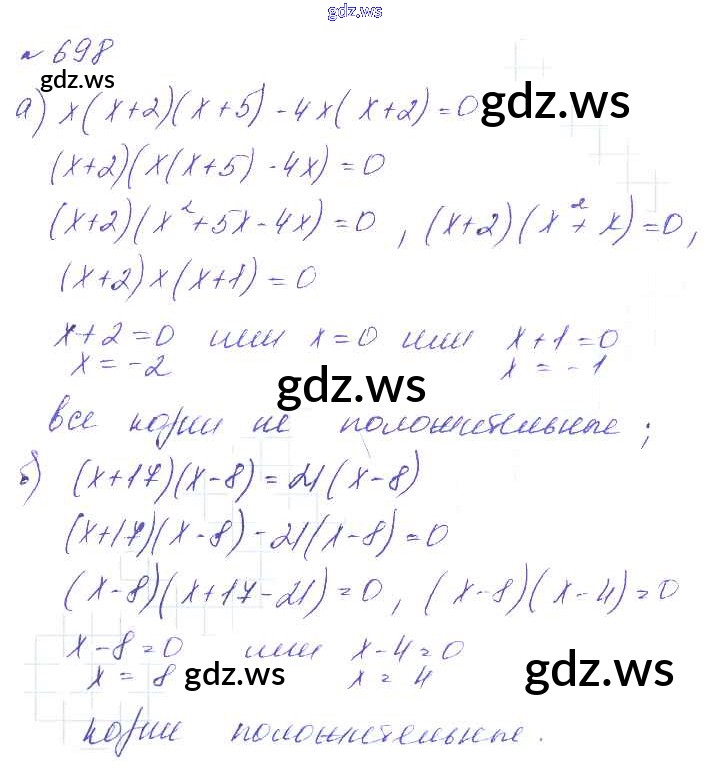 gdz.ws
№ 698
gdz.ws
а) x(x+2)(x+5) - 4x(x+2) = 0 gdz.ws
(x+2)(x(x+5) - 4x) = 0
(x+2)(x²+5x-4x) = 0, (x+2)(x²+x) = 0,
(x+2)x(x+1) = 0
x+2 = 0 или x = 0 или x+1 = 0
x = -2 x = -1
gdz.ws
все корни не положительные;
б) (x+17)(x-8) = 21(x-8)
(x+17)(x-8) - 21(x-8) = 0
(x-8)(x+17-21) = 0, (x-8)(x-4) = 0
x-8 = 0 или x-4 = 0
x = 8 gdz.ws x = 4 gdz.ws
корни положительные.